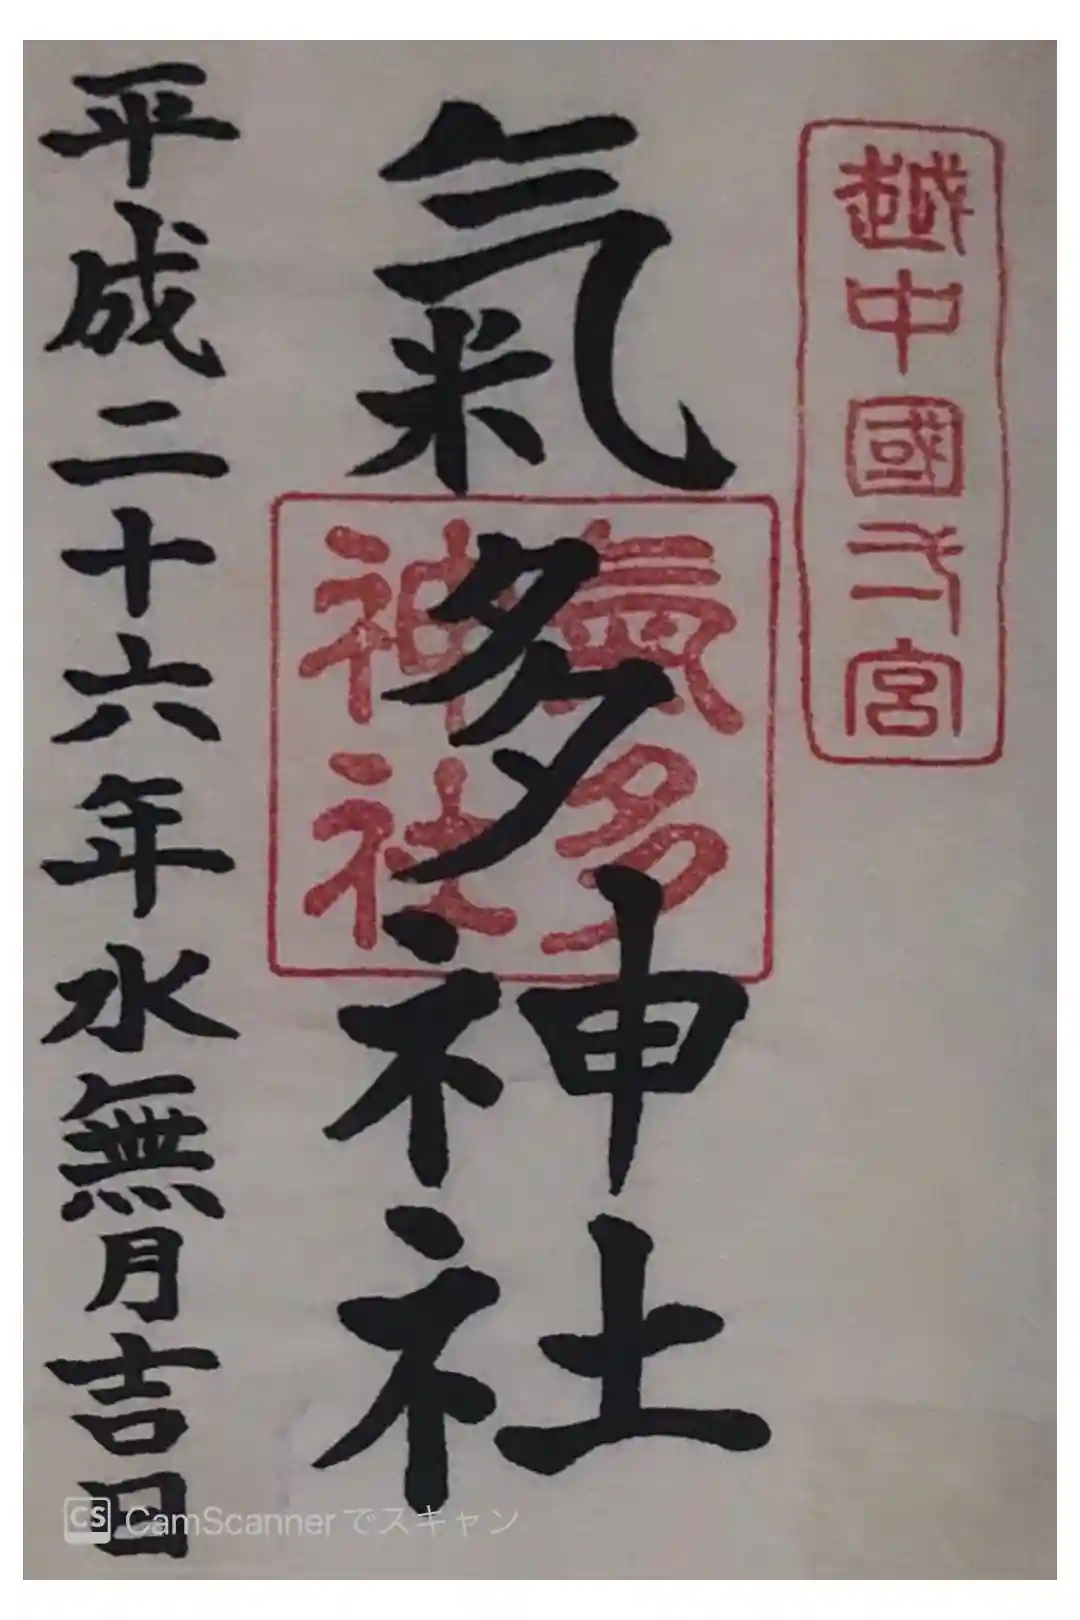 越中國弌宮
氣多神社
氣多
神社
平成二十六年水無月吉日
CS CamScannerでスキャン